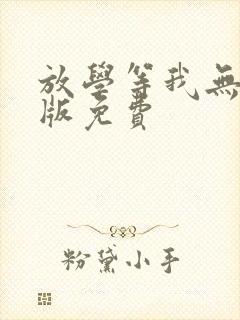 放學等我無
版免費
粉黛小手